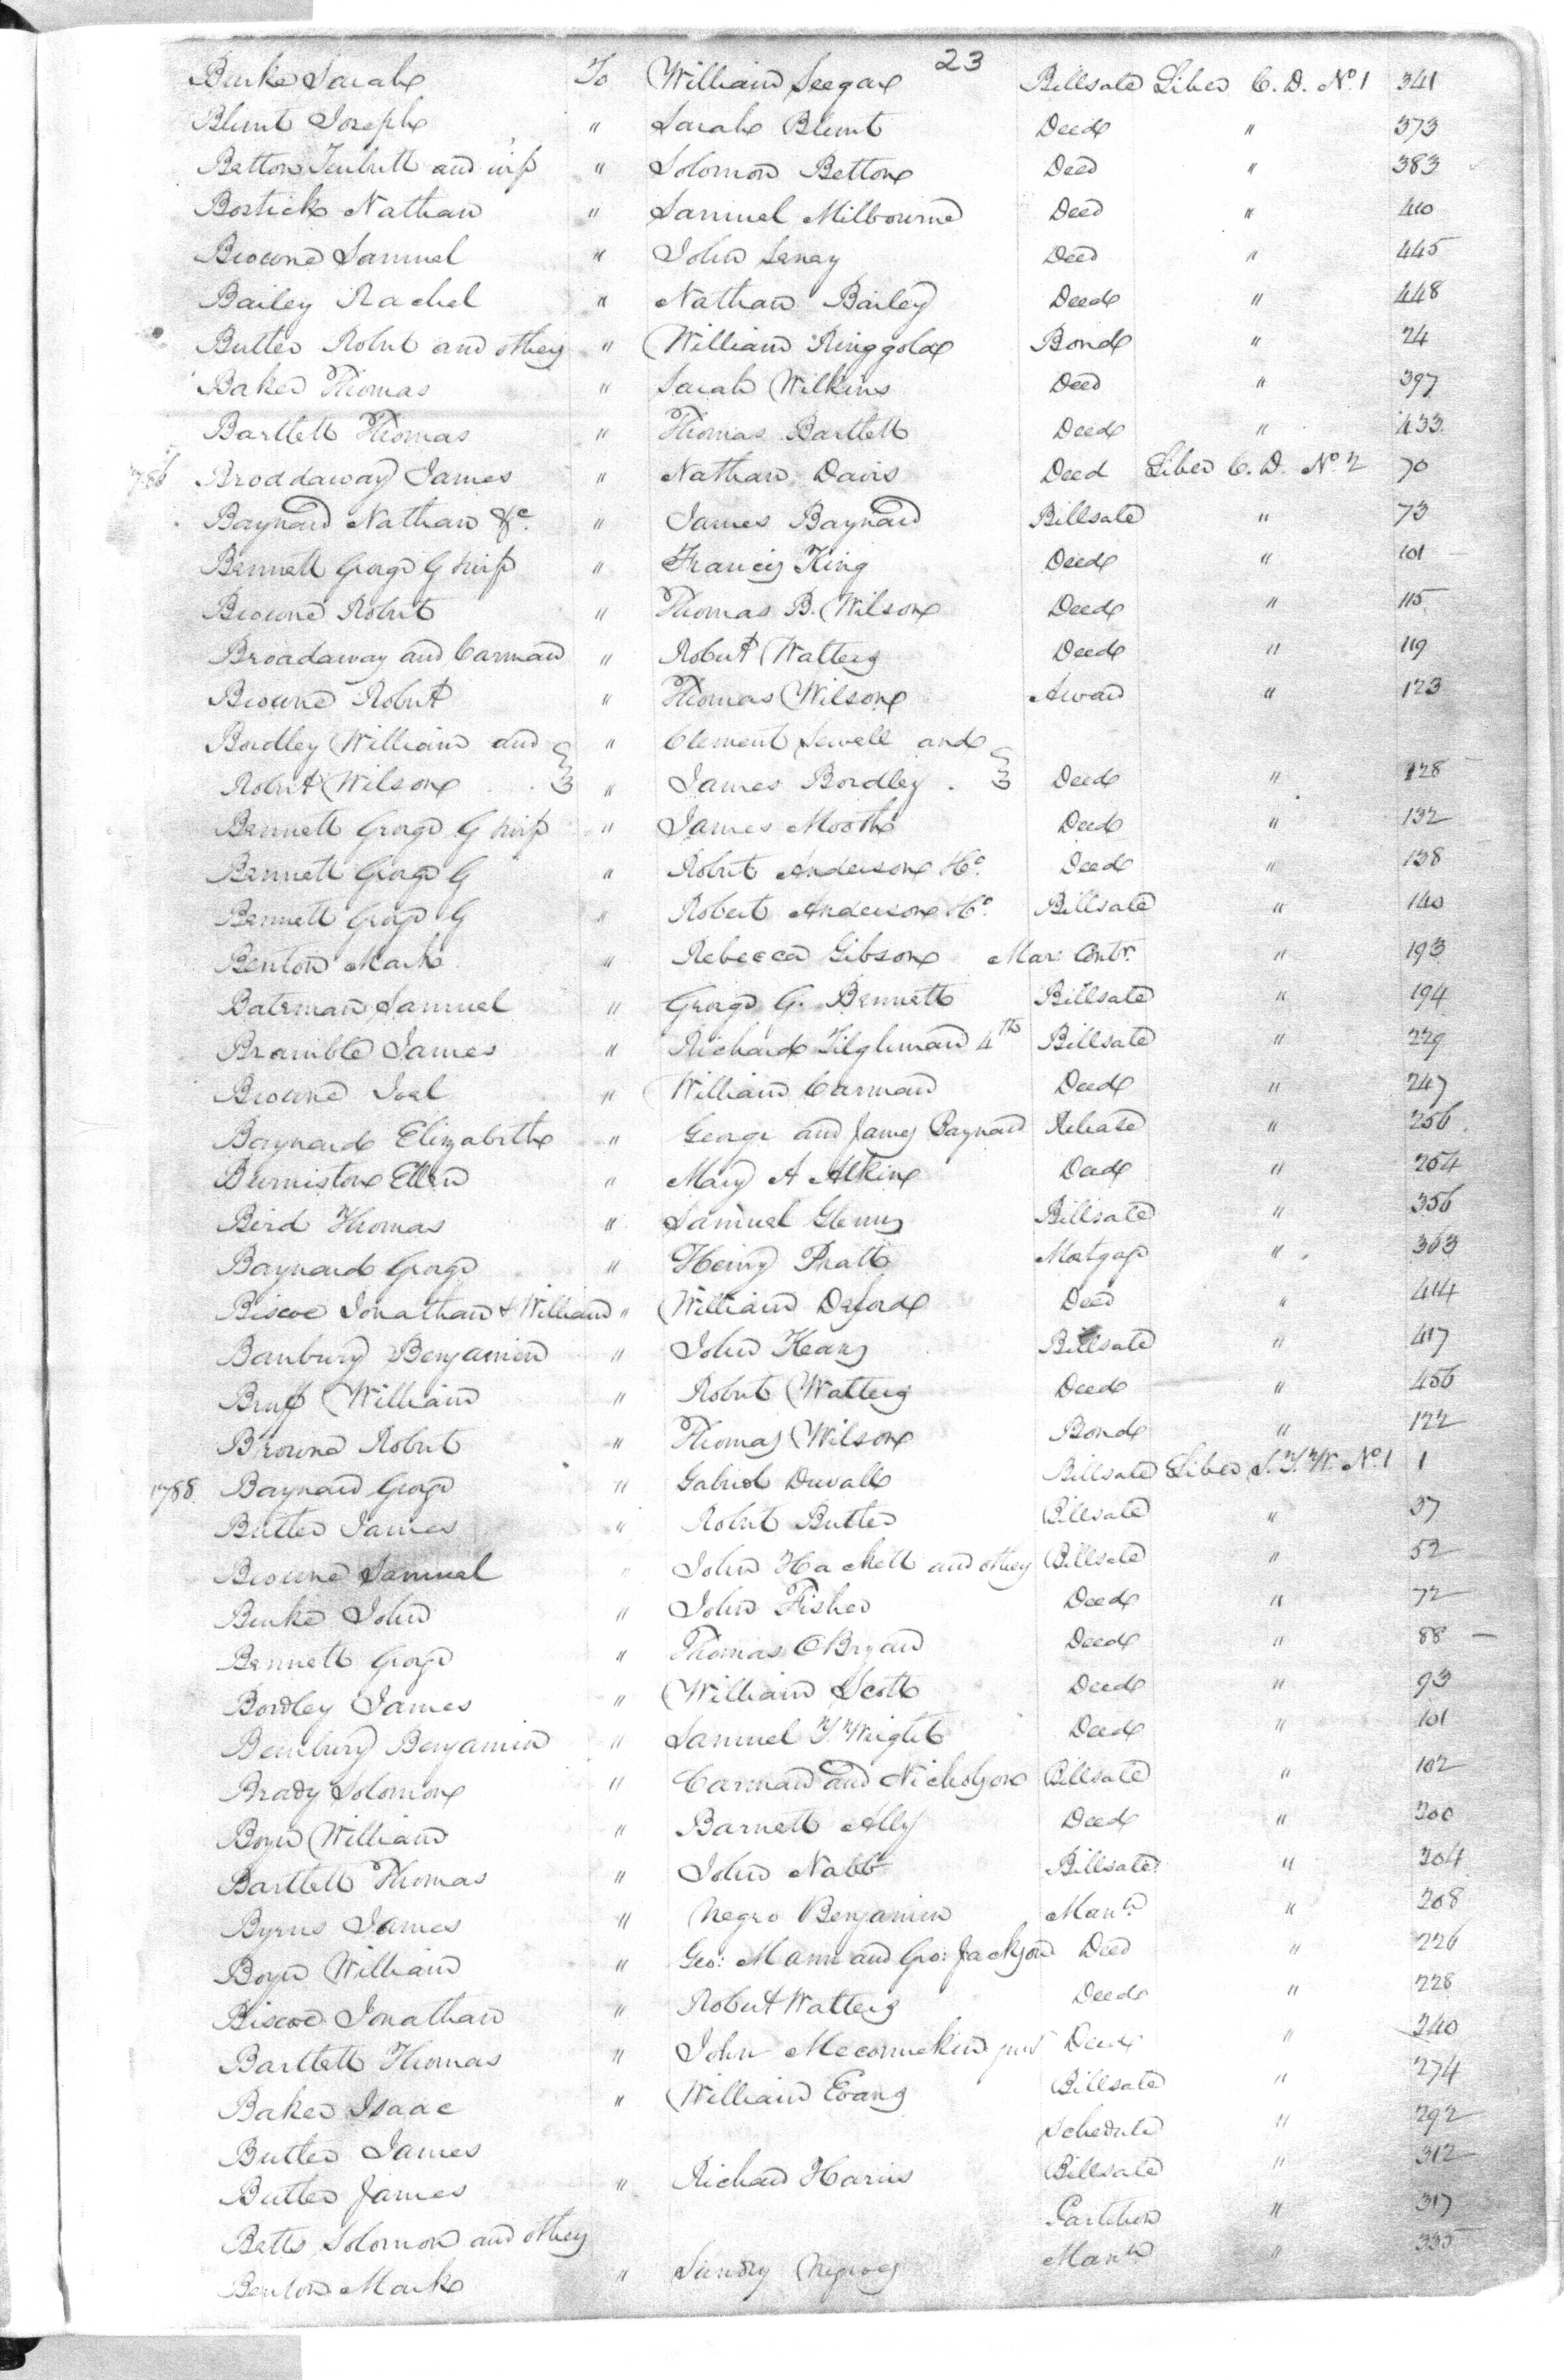 23
Burke Sarah To William Seegar Billsale Liber C. D. No. 1 341
Blunt Joseph " Sarah Blunt Deed " 373
Betton Turbutt and wife " Solomon Betton Deed " 383
Bostick Nathan " Samuel Milbourne Deed " 410
Browne Samuel " John Seney Deed " 445
Bailey Rachel " Nathan Bailey Deed " 448
Butler Robert and others " William Ringgold Bond " 24
Baker Thomas " Sarah Wilkins Deed " 397
Bartlett Thomas " Thomas Bartlett Deed " 433
1786 Broddaway James " Nathan Davis Deed Liber C. D. No. 2 70
Baynard Nathan &c. " James Baynard Billsale " 73
Bennett George G & wife " Francis King Deed " 101
Browne Robert " Thomas B. Wilson Deed " 115
Broadaway and Carman " Robert Walters Deed " 119
Browne Robert " Thomas Wilson Award " 123
Bordley William and " Clement Sewell and
Robert Wilson " James Bordley Deed " 128
Bennett George G & wife " James Mooth Deed " 132
Bennett George G " Robert Anderson &Co. Deed " 138
Bennett George G " Robert Anderson &Co. Billsale " 140
Benton Mark " Rebecca Gibson Mar: Contr. " 193
Bateman Samuel " George G. Bennett Billsale " 194
Bramble James " Richard Tilghman 4th Billsale " 229
Browne Joel " William Carman Deed " 247
Baynard Elizabeth " George and James Baynard Release " 256
Burniston Ellen " Mary A Atkin Deed " 264
Bird Thomas " Samuel Glenn Billsale " 356
Baynard George " Henry Pratt Mortgage " 363
Biscoe Jonathan & William " William Deford Deed " 414
Banbury Benjamin " John Keans Billsale " 417
Bruff William " Robert Walters Deed " 456
Browne Robert " Thomas Wilson Bond " 122
1788. Baynard George " Gabriel Duvall Billsale Liber S. T. W. No. 1 1
Butler James " Robert Butler Billsale " 37
Browne Samuel " John Hackett and others Billsale " 52
Burke John " John Fisher Deed " 72
Bennett George " Thomas OBryan Deed " 88
Bordley James " William Scott Deed " 93
Bembury Benjamin " Samuel T. Wright Deed " 101
Brady Solomon " Carman and Nicholson Billsale " 102
Boyer William " Barnett Ally Deed " 200
Bartlett Thomas " John Nabb Billsale " 204
Byrns James " Negro Benjamin Mann. " 208
Boyer William " Geo: Mann and Geo: Jackson Deed " 226
Biscoe Jonathan " Robert Walters Deed " 228
Bartlett Thomas " John Meconnekin junr Deed " 240
Baker Isaac " William Evans Billsale " 274
Butler James Schedule " 292
Butler James " Richard Harris Billsale " 312
Betts Solomon and others Partition " 317
Benton Mark " Sundry Negroes Mann. " 335